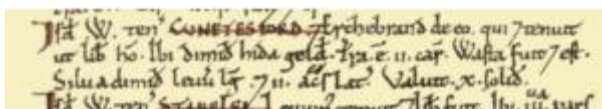 Isđ. W. ten' CUNETESFORD. ⁊ Erchebrand de eo. qui ⁊ tenuit
ut lib hō. Ibi dimiđ hida gelđ. Tra. ē. ii. car. Wasta fuit ⁊ est.
Silua dimiđ leuū lḡ. ⁊ ii. acris lat'. Valuit. x. soliđ.
Isđ W. ten' STANELEI.